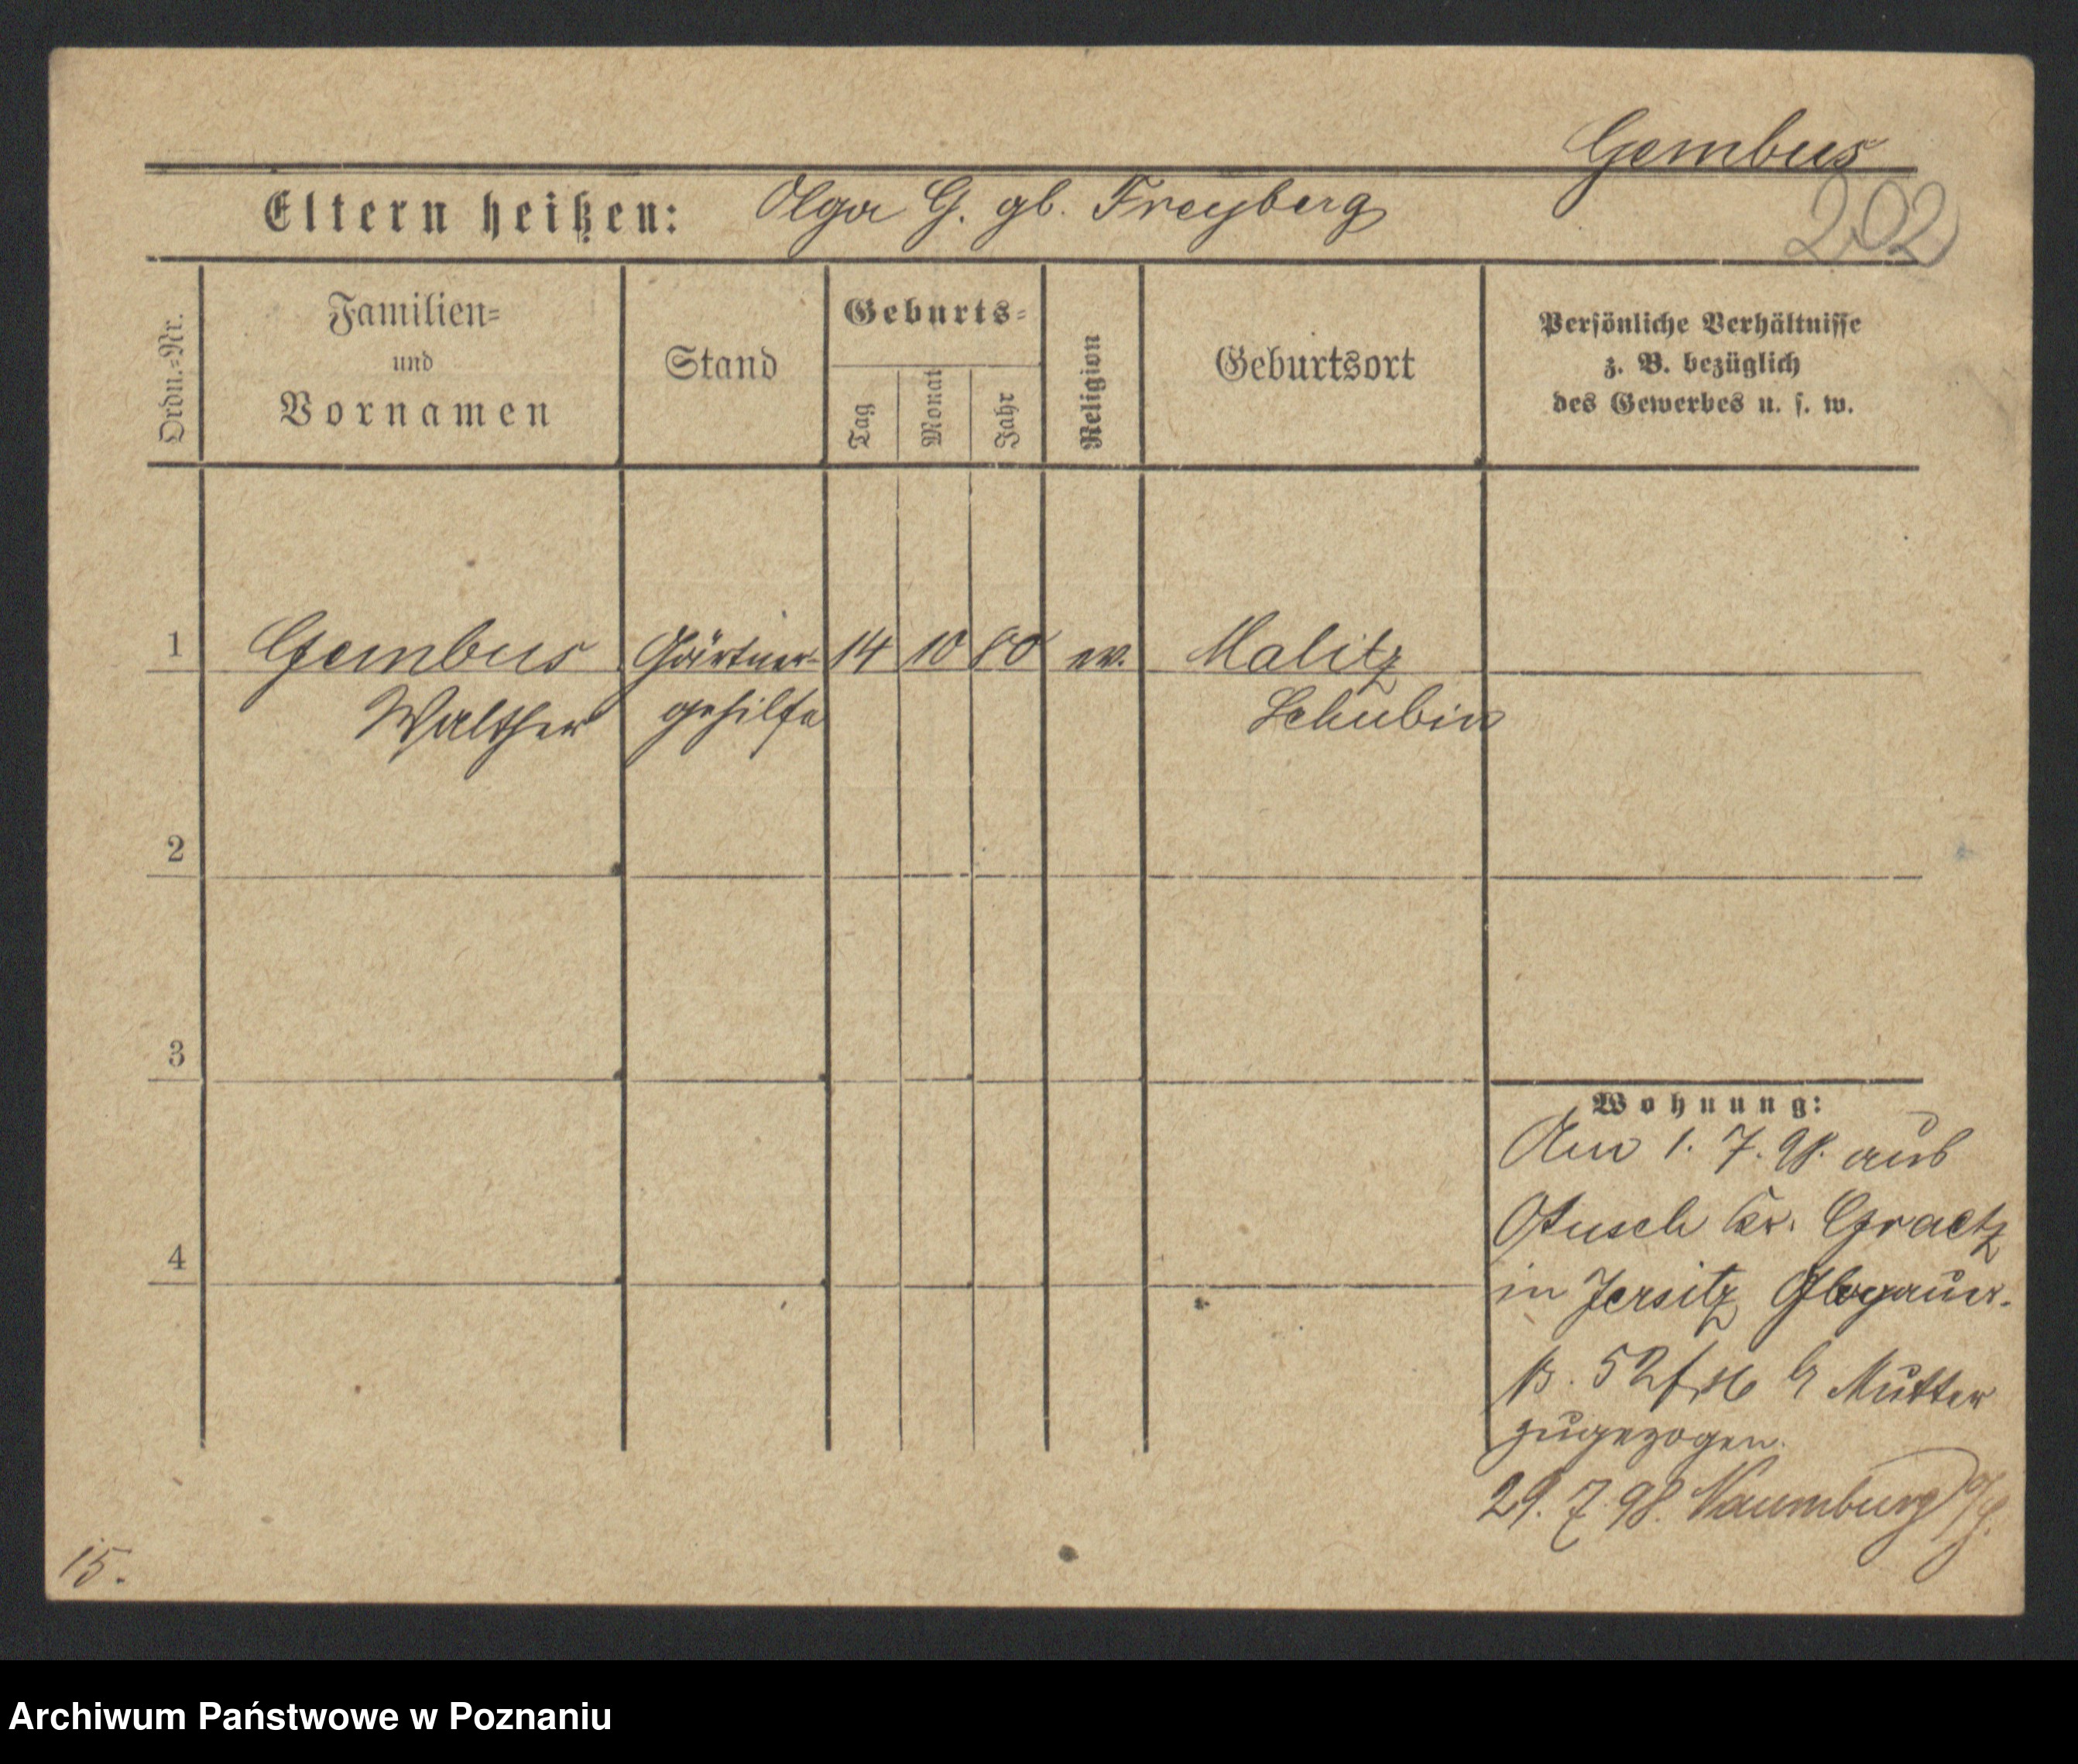 Gembus
Eltern heißen: Olga G. gb. Freyberg
202
Ordn.=Nr.
Familien=
und
Vornamen
Stand
Geburts=
Tag
Monat
Jahr
Religion
Geburtsort
Persönliche Verhältnisse
z. B. bezüglich
des Gewerbes u. s. w.
1 Gembus Gärtner- 14 10 80 ev. Malitz
Walther gehilfe Schubin
2
3
4
Wohnung:
Am 1. 7. 98. aus
Otusch Kr. Graetz
in Jersitz Glogauer-
52 Mutter
zugezogen.
29. 7. 98. Naumburg
15.
Archiwum Państwowe w Poznaniu